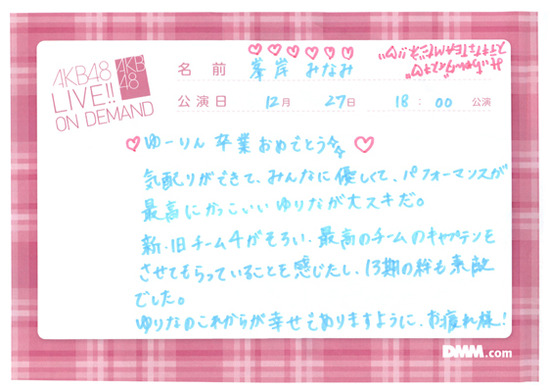 AKB48
LIVE!!
ON DEMAND
AKB
48
名前 峯岸 みなみ
公演日 12月 27日 18:00 公演
ゆーりん 卒業 おめでとう
気配りができて、みんなに優しくて、パフォーマンスが
最高にかっこいい ゆりなが大スキだ。
新・旧チーム4がそろい、最高のチームのキャプテンを
させてもらっていることを感じたし、13期の絆も素敵
でした。
ゆりなのこれからが幸せでありますように、お疲れ様!
DMM.com